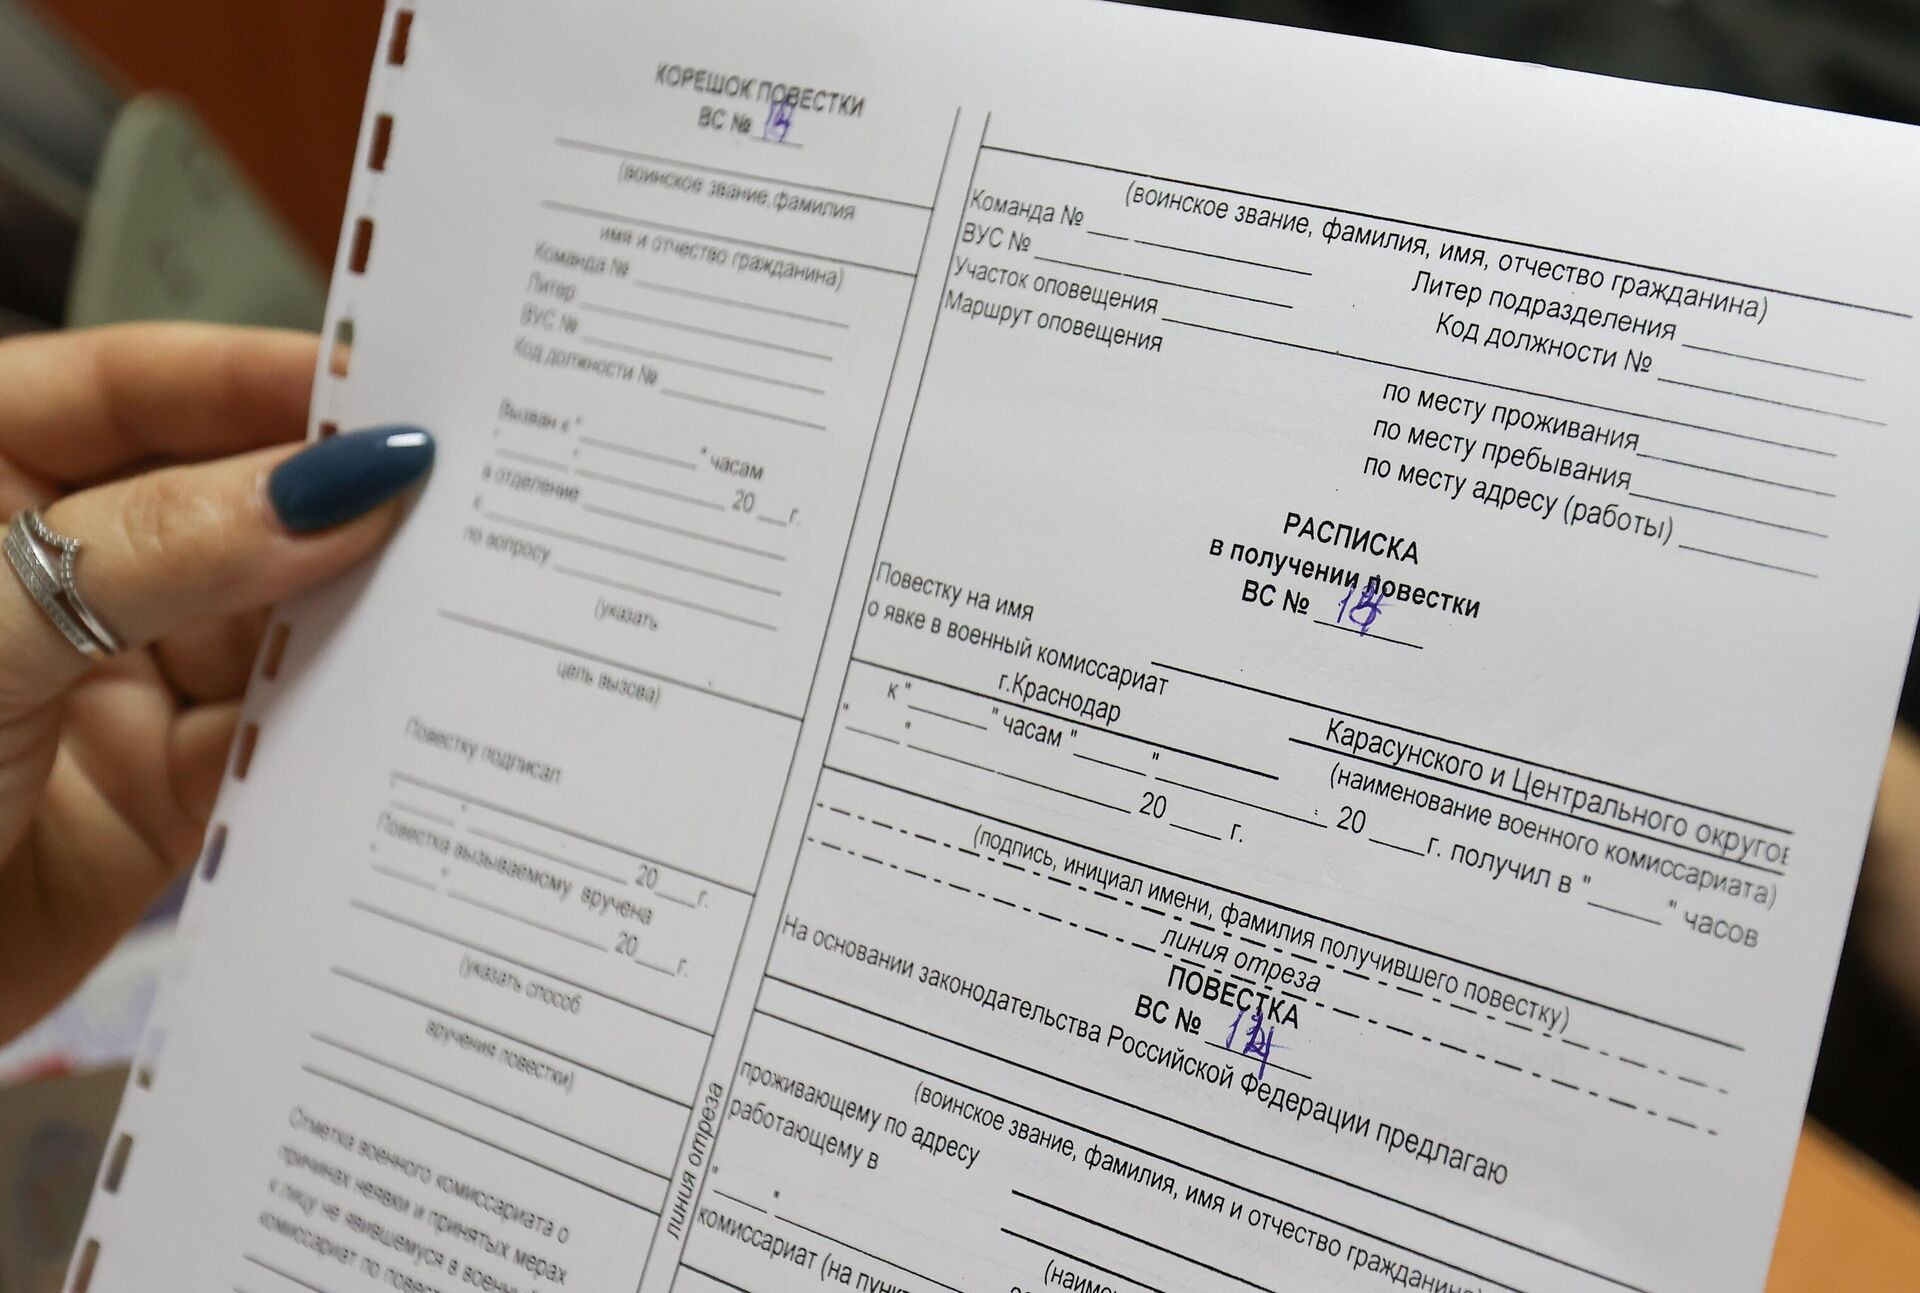 КОРЕШОК ПОВЕСТКИ
ВС №
(воинское звание, фамилия
имя и отчество гражданина)
Команда №
Литер
ВУС №
Код должности №
Вызван к " " часам
" " 20 г.
в отделение
к
по вопросу
(указать
цель вызова)
Повестку подписал
" " 20 г.
Повестка вызываемому вручена
" " 20 г.
(указать способ
вручения повестки)
Отметка военного комиссариата о
причинах неявки и принятых мерах
к лицу не явившемуся в военный
комиссариат по
линия отреза
(воинское звание, фамилия, имя, отчество гражданина)
Команда № Литер подразделения
ВУС № Код должности №
Участок оповещения
Маршрут оповещения
по месту проживания
по месту пребывания
по месту адресу (работы)
РАСПИСКА
в получении повестки
ВС №
Повестку на имя
о явке в военный комиссариат Карасунского и Центрального округов
г.Краснодар (наименование военного комиссариата)
к " " часам " " 20 г. получил в " " часов
" " 20 г.
(подпись, инициал имени, фамилия получившего повестку)
линия отреза
ПОВЕСТКА
ВС № 14
На основании законодательства Российской Федерации предлагаю
(воинское звание, фамилия, имя и отчество гражданина)
проживающему по адресу
работающему в
" "
комиссариат (на